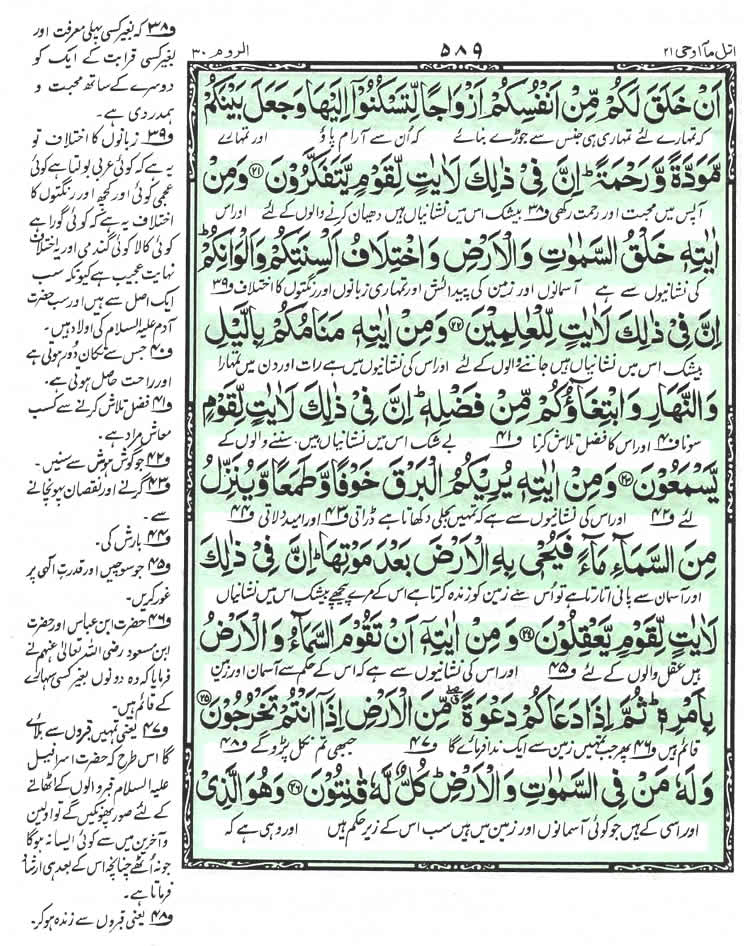 اتل ما اوحی ۲۱
۵۸۹
الروم ۳۰
اَنْ خَلَقَ لَكُمْ مِّنْ اَنْفُسِكُمْ اَزْوَاجًا لِّتَسْكُنُوْۤا اِلَیْهَا وَجَعَلَ بَیْنَكُمْ
کہ تمہارے لئے تمہاری ہی جنس سے جوڑے بنائے کہ اُن سے آرام پاؤ اور تمہارے
مَّوَدَّةً وَّرَحْمَةً ؕ اِنَّ فِیْ ذٰلِكَ لَاٰیٰتٍ لِّقَوْمٍ یَّتَفَكَّرُوْنَ ﴿۲۱﴾ وَمِنْ
آپس میں محبت اور رحمت رکھی و۳۸ بیشک اس میں نشانیاں ہیں دھیان کرنے والوں کے لئے اور اس
اٰیٰتِهٖ خَلْقُ السَّمٰوٰتِ وَالْاَرْضِ وَاخْتِلَافُ اَلْسِنَتِكُمْ وَاَلْوَانِكُمْ ؕ
کی نشانیوں سے ہے آسمانوں اور زمین کی پیدائش اور تمہاری زبانوں اور رنگتوں کا اختلاف و۳۹
اِنَّ فِیْ ذٰلِكَ لَاٰیٰتٍ لِّلْعٰلِمِیْنَ ﴿۲۲﴾ وَمِنْ اٰیٰتِهٖ مَنَامُكُمْ بِالَّیْلِ
بیشک اس میں نشانیاں ہیں جاننے والوں کے لئے اور اس کی نشانیوں میں ہے رات اور دن میں تمہارا
وَالنَّهَارِ وَابْتِغَآؤُكُمْ مِّنْ فَضْلِهٖ ؕ اِنَّ فِیْ ذٰلِكَ لَاٰیٰتٍ لِّقَوْمٍ
سونا و۴۰ اور اس کا فضل تلاش کرنا و۴۱ بے شک اس میں نشانیاں ہیں سننے والوں کے
یَّسْمَعُوْنَ ﴿۲۳﴾ وَمِنْ اٰیٰتِهٖ یُرِیْكُمُ الْبَرْقَ خَوْفًا وَّطَمَعًا وَّیُنَزِّلُ
لئے و۴۲ اور اس کی نشانیوں سے ہے کہ تمہیں بجلی دکھاتا ہے ڈراتی و۴۳ اور امید دلاتی و۴۴
مِنَ السَّمَآءِ مَآءً فَیُحْیٖ بِهِ الْاَرْضَ بَعْدَ مَوْتِهَا ؕ اِنَّ فِیْ ذٰلِكَ
اور آسمان سے پانی اتارتا ہے تو اُس سے زمین کو زندہ کرتا ہے اس کے مرے پیچھے بیشک اس میں نشانیاں
لَاٰیٰتٍ لِّقَوْمٍ یَّعْقِلُوْنَ ﴿۲۴﴾ وَمِنْ اٰیٰتِهٖۤ اَنْ تَقُوْمَ السَّمَآءُ وَالْاَرْضُ
ہیں عقل والوں کے لئے و۴۵ اور اس کی نشانیوں سے ہے کہ اس کے حکم سے آسمان اور زمین
بِاَمْرِهٖ ؕ ثُمَّ اِذَا دَعَاكُمْ دَعْوَةً مِّنَ الْاَرْضِ اِذَاۤ اَنْتُمْ تَخْرُجُوْنَ ﴿۲۵﴾
قائم ہیں و۴۶ پھر جب تمہیں زمین سے ایک ندا فرمائے گا و۴۷ جبھی تم نکل پڑو گے و۴۸
وَلَهٗ مَنْ فِی السَّمٰوٰتِ وَالْاَرْضِ ؕ كُلٌّ لَّهٗ قٰنِتُوْنَ ﴿۲۶﴾ وَهُوَ الَّذِیْ
اور اسی کے ہیں جو کوئی آسمانوں اور زمین میں ہیں سب اس کے زیر حکم ہیں اور وہی ہے کہ
و۳۸ کہ بغیر کسی پہلی معرفت اور
بغیر کسی قرابت کے ایک کو
دوسرے کے ساتھ محبت و
ہمدردی ہے۔
و۳۹ زبانوں کا اختلاف تو
یہ ہے کہ کوئی عربی بولتا ہے کوئی
عجمی کوئی اور کچھ اور رنگتوں کا
اختلاف یہ ہے کہ کوئی گورا ہے
کوئی کالا کوئی گندمی اور یہ اختلاف
نہایت عجیب ہے کیونکہ سب
ایک اصل سے ہیں اور سب حضرت
آدم علیہ السلام کی اولاد ہیں۔
و۴۰ جس سے تکان دُور ہوتی ہے
اور راحت حاصل ہوتی ہے۔
و۴۱ فضل تلاش کرنے سے کسب
معاش مراد ہے۔
و۴۲ جو گوش ہوش سے سنیں۔
و۴۳ گرنے اور نقصان پہونچانے
سے۔
و۴۴ بارش کی۔
و۴۵ جو سوچیں اور قدرت الٰہی پر
غور کریں۔
و۴۶ حضرت ابن عباس اور حضرت
ابن مسعود رضی اللہ تعالیٰ عنہم نے
فرمایا کہ وہ دونوں بغیر کسی سہارے
کے قائم ہیں۔
و۴۷ یعنی تمہیں قبروں سے بلائے
گا اس طرح کہ حضرت اسرافیل
علیہ السلام قبر والوں کے اٹھانے
کے لئے صور پھونکیں گے تو اولین
و آخرین میں سے کوئی ایسا نہ ہوگا
جو نہ اُٹھے چنانچہ اس کے بعد ہی ارشاد
فرماتا ہے۔
و۴۸ یعنی قبروں سے زندہ ہو کر۔